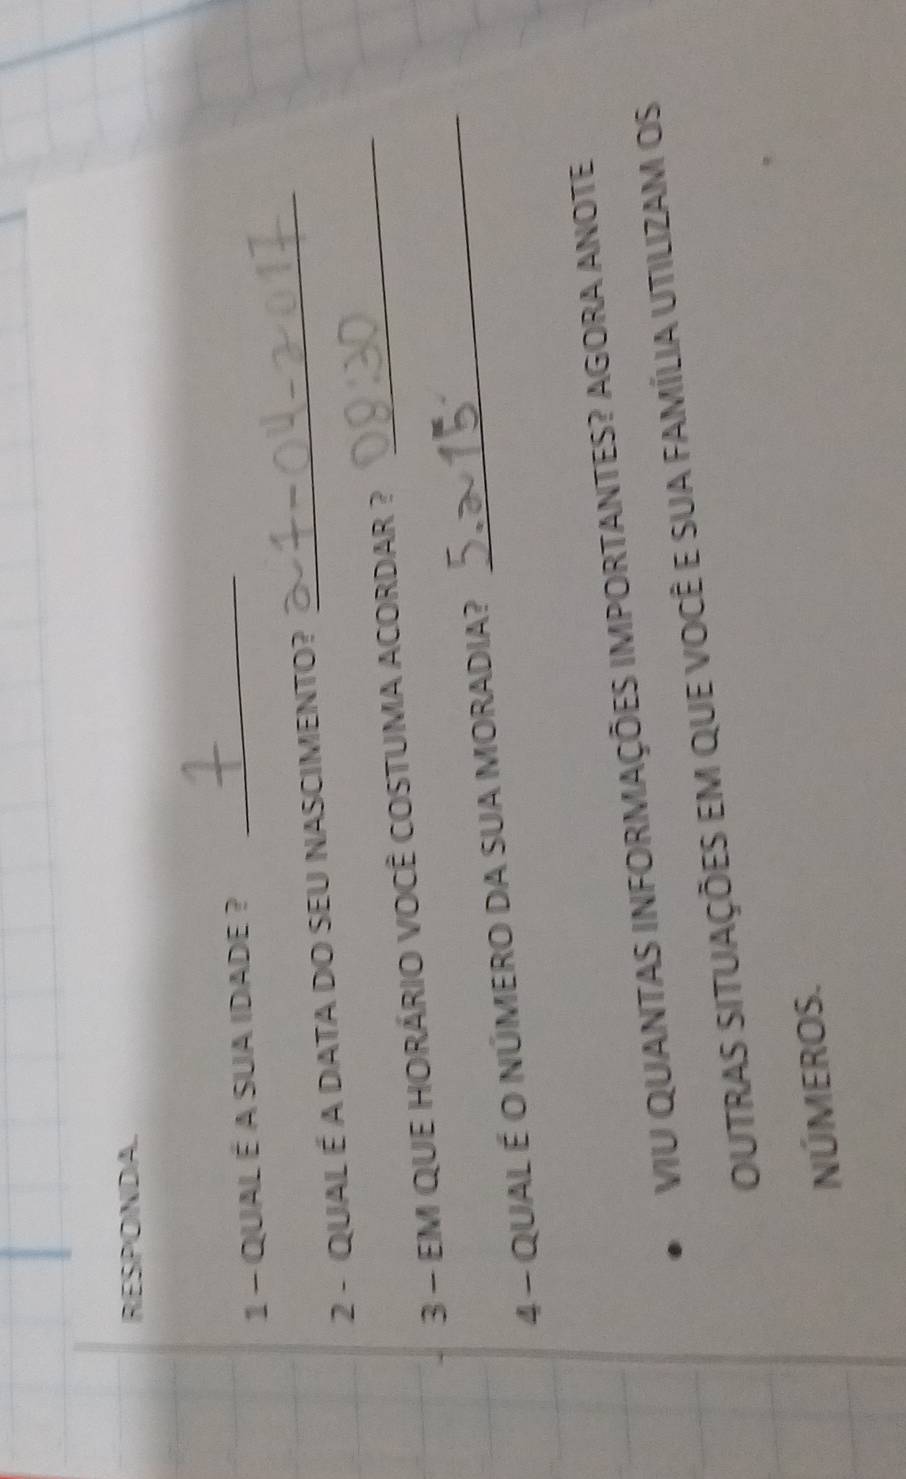 RESPONDA.
1 – QUAL É A SUA IDADE ? 7
2 - QUAL É A DATA DO SEU NASCIMENTO? 27-04-2017
3 – EM QUE HORÁRIO VOCÊ COSTUMA ACORDAR ? 08:30
4 – QUAL É O NÚMERO DA SUA MORADIA? 5.215
• VIU QUANTAS INFORMAÇÕES IMPORTANTES? AGORA ANOTE
OUTRAS SITUAÇÕES EM QUE VOCÊ E SUA FAMÍLIA UTILIZAM OS
NÚMEROS.